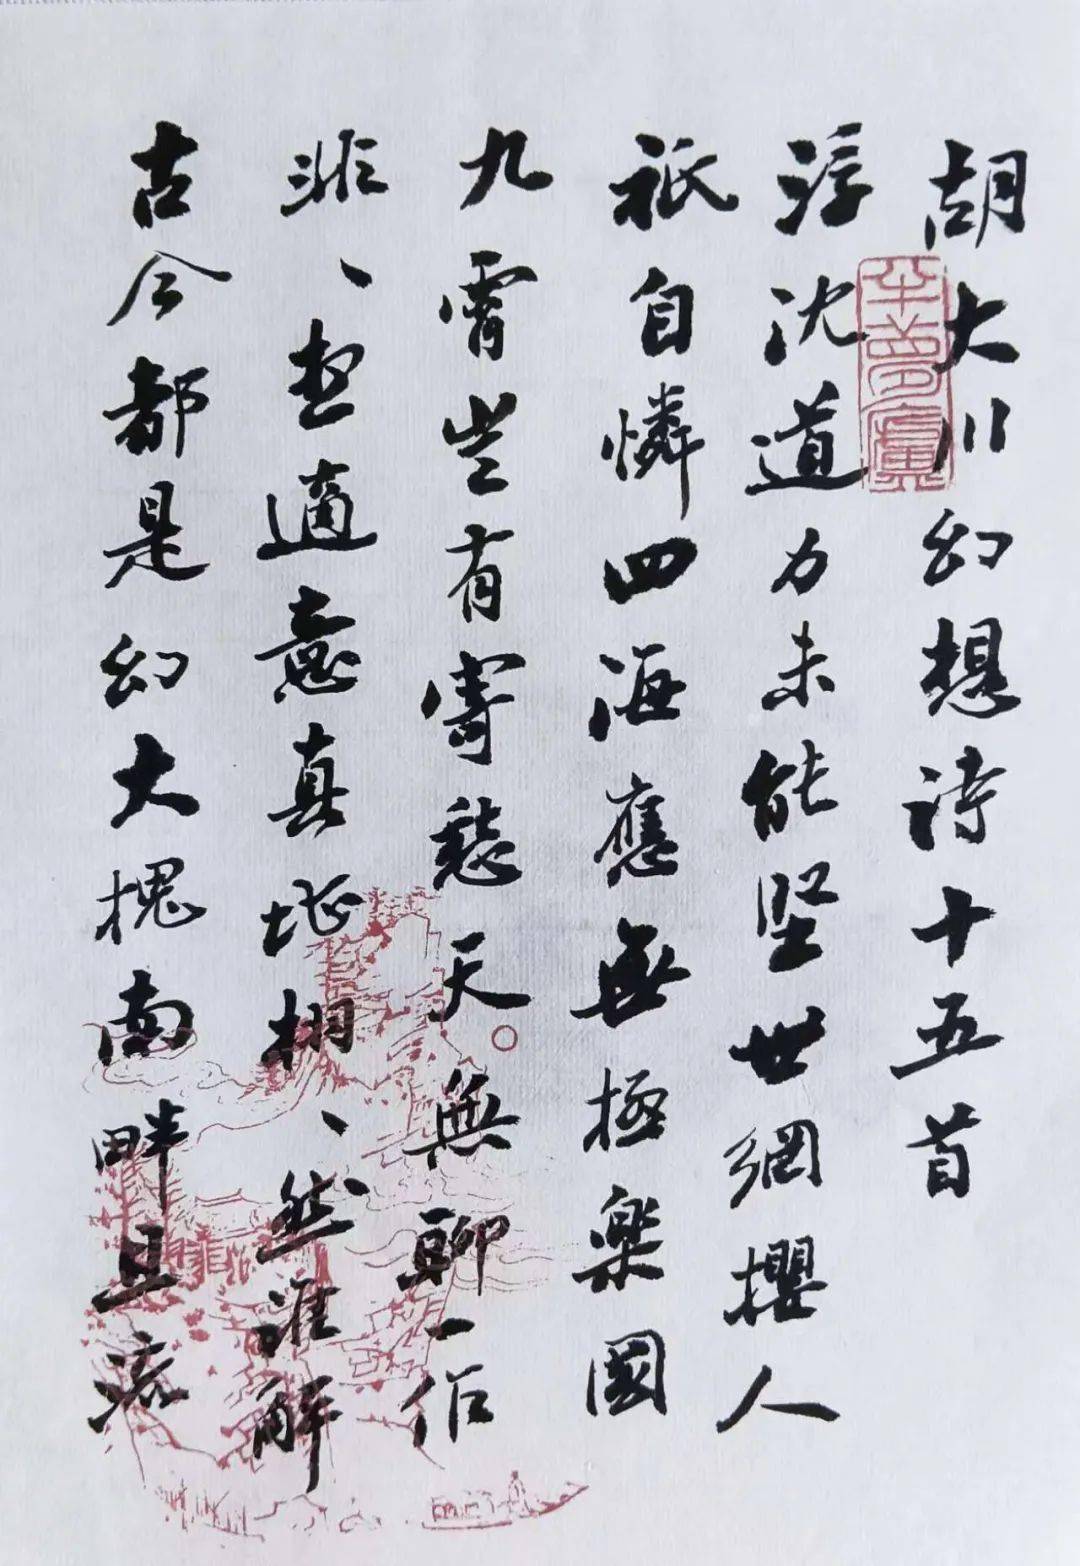 胡大川幻想诗十五首
浮沈道力未能坚世網攖人
祇自憐四海應無極樂國
九霄豈有寄愁天無聊一作
非、想適意真堪栩、然誰解
古今都是幻大槐南畔且流
半夢廬